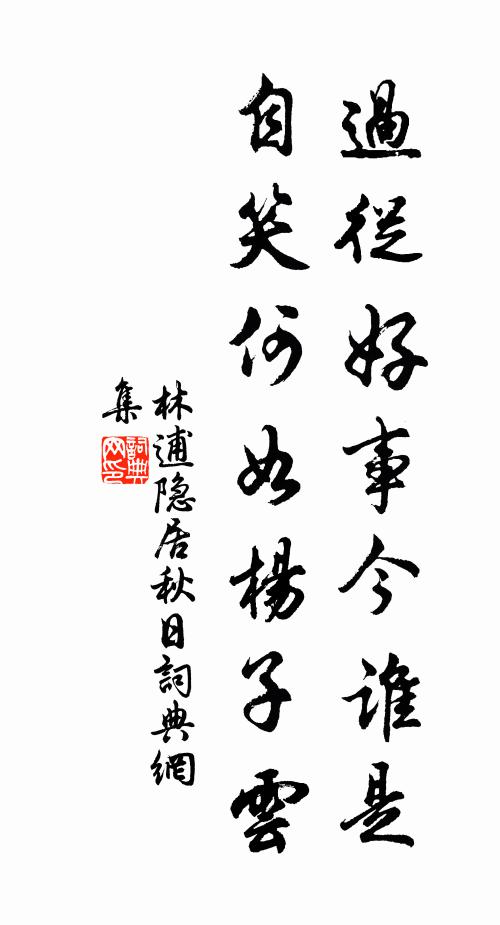 過從好事今誰是
自笑何如楊子雲
林逋隐居秋日詞典網
集
詞典网印